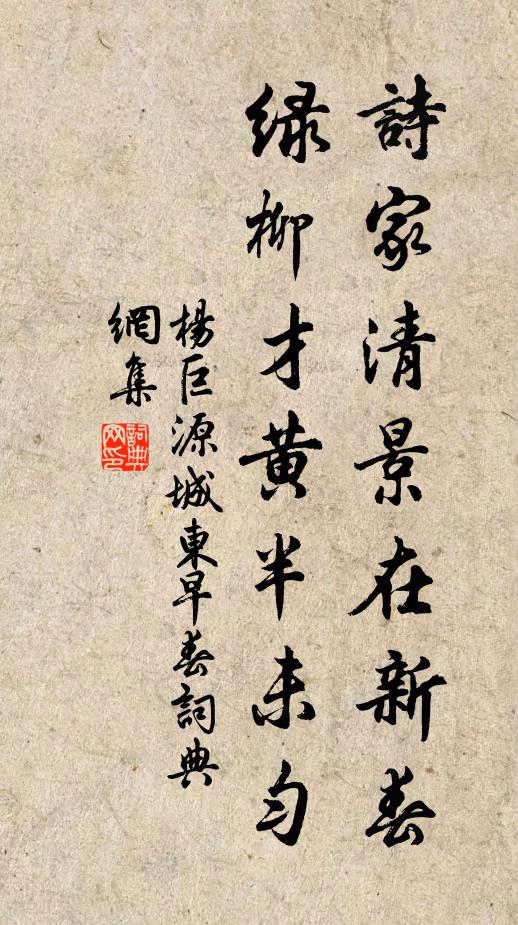 詩家清景在新春
緑柳才黄半未匀
楊巨源城東早春詞典
網集
詞典
网印